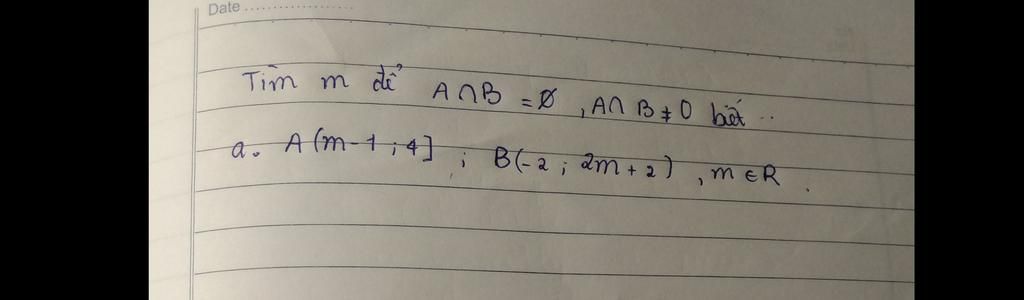 Date ..................
Tìm m để A∩B = Ø , A∩ B ≠ 0 biết ..
a. A(m-1 ; 4] ; B(-2 ; 2m+2) , m ∈ R .